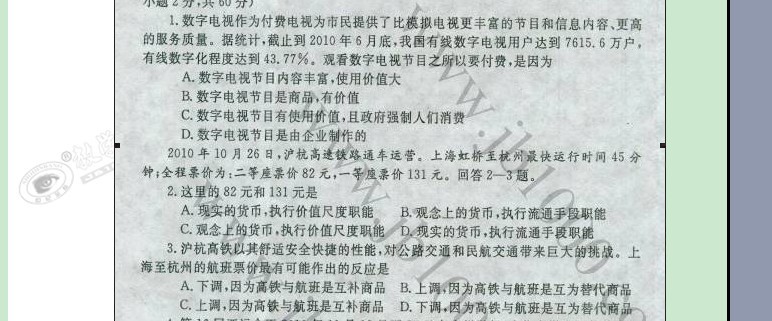 小题2分,共60分)
1.数字电视作为付费电视为市民提供了比模拟电视更丰富的节目和信息内容、更高
的服务质量。据统计,截止到2010年6月底,我国有线数字电视用户达到7615.6万户,
有线数字化程度达到43.77%。观看数字电视节目之所以要付费,是因为
A.数字电视节目内容丰富,使用价值大
B.数字电视节目是商品,有价值
C.数字电视节目有使用价值,且政府强制人们消费
D.数字电视节目是由企业制作的
2010年10月26日,沪杭高速铁路通车运营。上海虹桥至杭州最快运行时间45分
钟;全程票价为:二等座票价82元,一等座票价131元。回答2—3题。
2.这里的82元和131元是
A.现实的货币,执行价值尺度职能 B.观念上的货币,执行流通手段职能
C.观念上的货币,执行价值尺度职能 D.现实的货币,执行流通手段职能
3.沪杭高铁以其舒适安全快捷的性能,对公路交通和民航交通带来巨大的挑战。上
海至杭州的航班票价最有可能作出的反应是
A.下调,因为高铁与航班是互补商品 B.上调,因为高铁与航班是互为替代商品
C.上调,因为高铁与航班是互补商品 D.下调,因为高铁与航班是互为替代商品